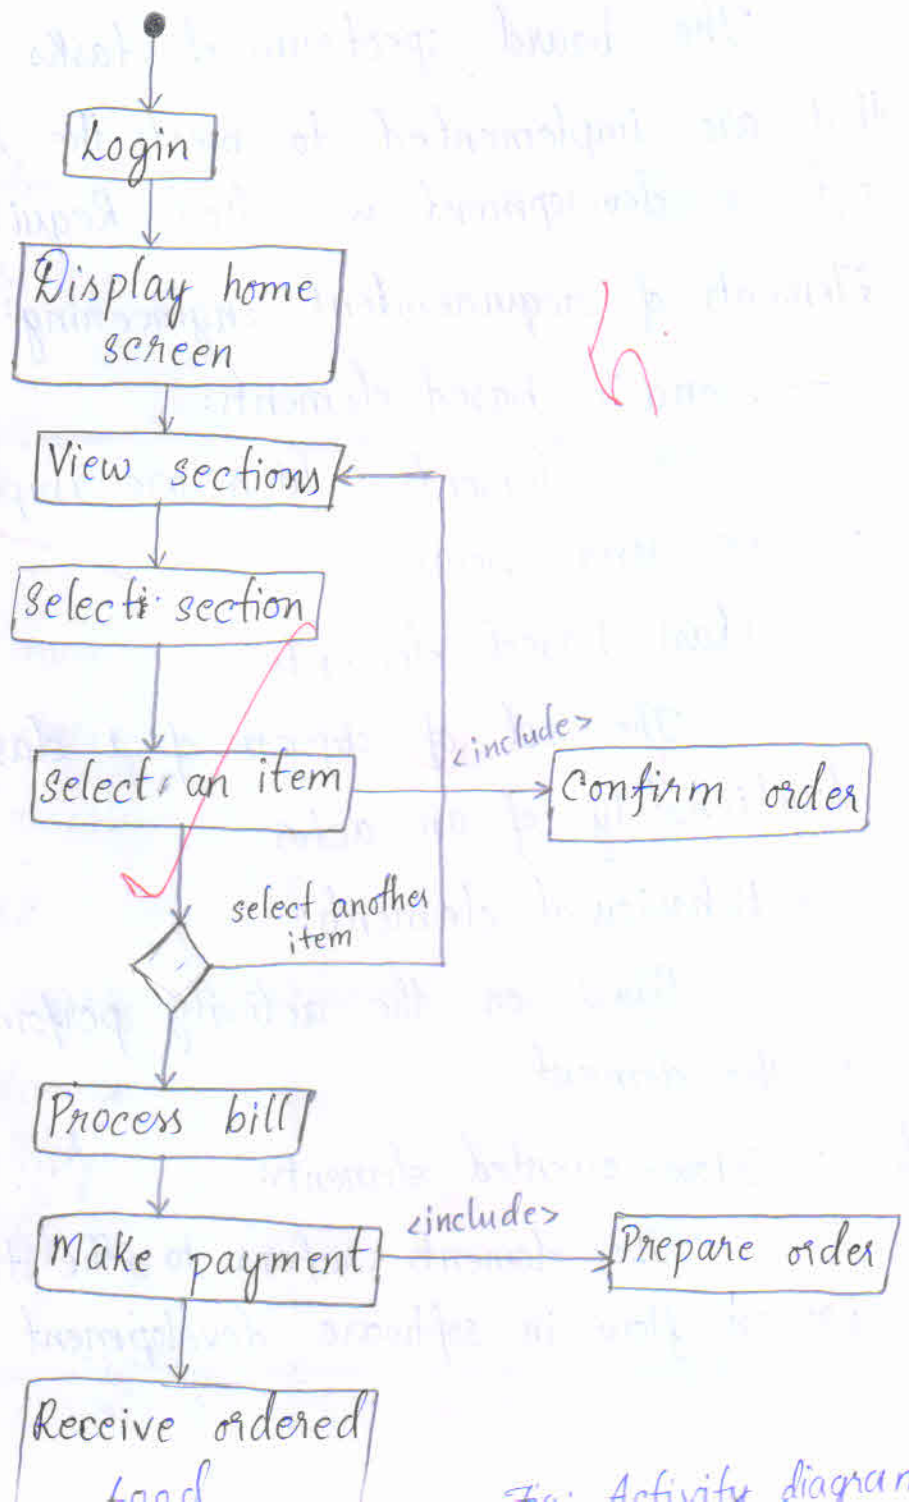 Login
Display home
screen
View sections
Select section
<include>
Select an item
Confirm order
select another
item
Process bill
<include>
Make payment
Prepare order
Receive ordered
food
Fig: Activity diagram